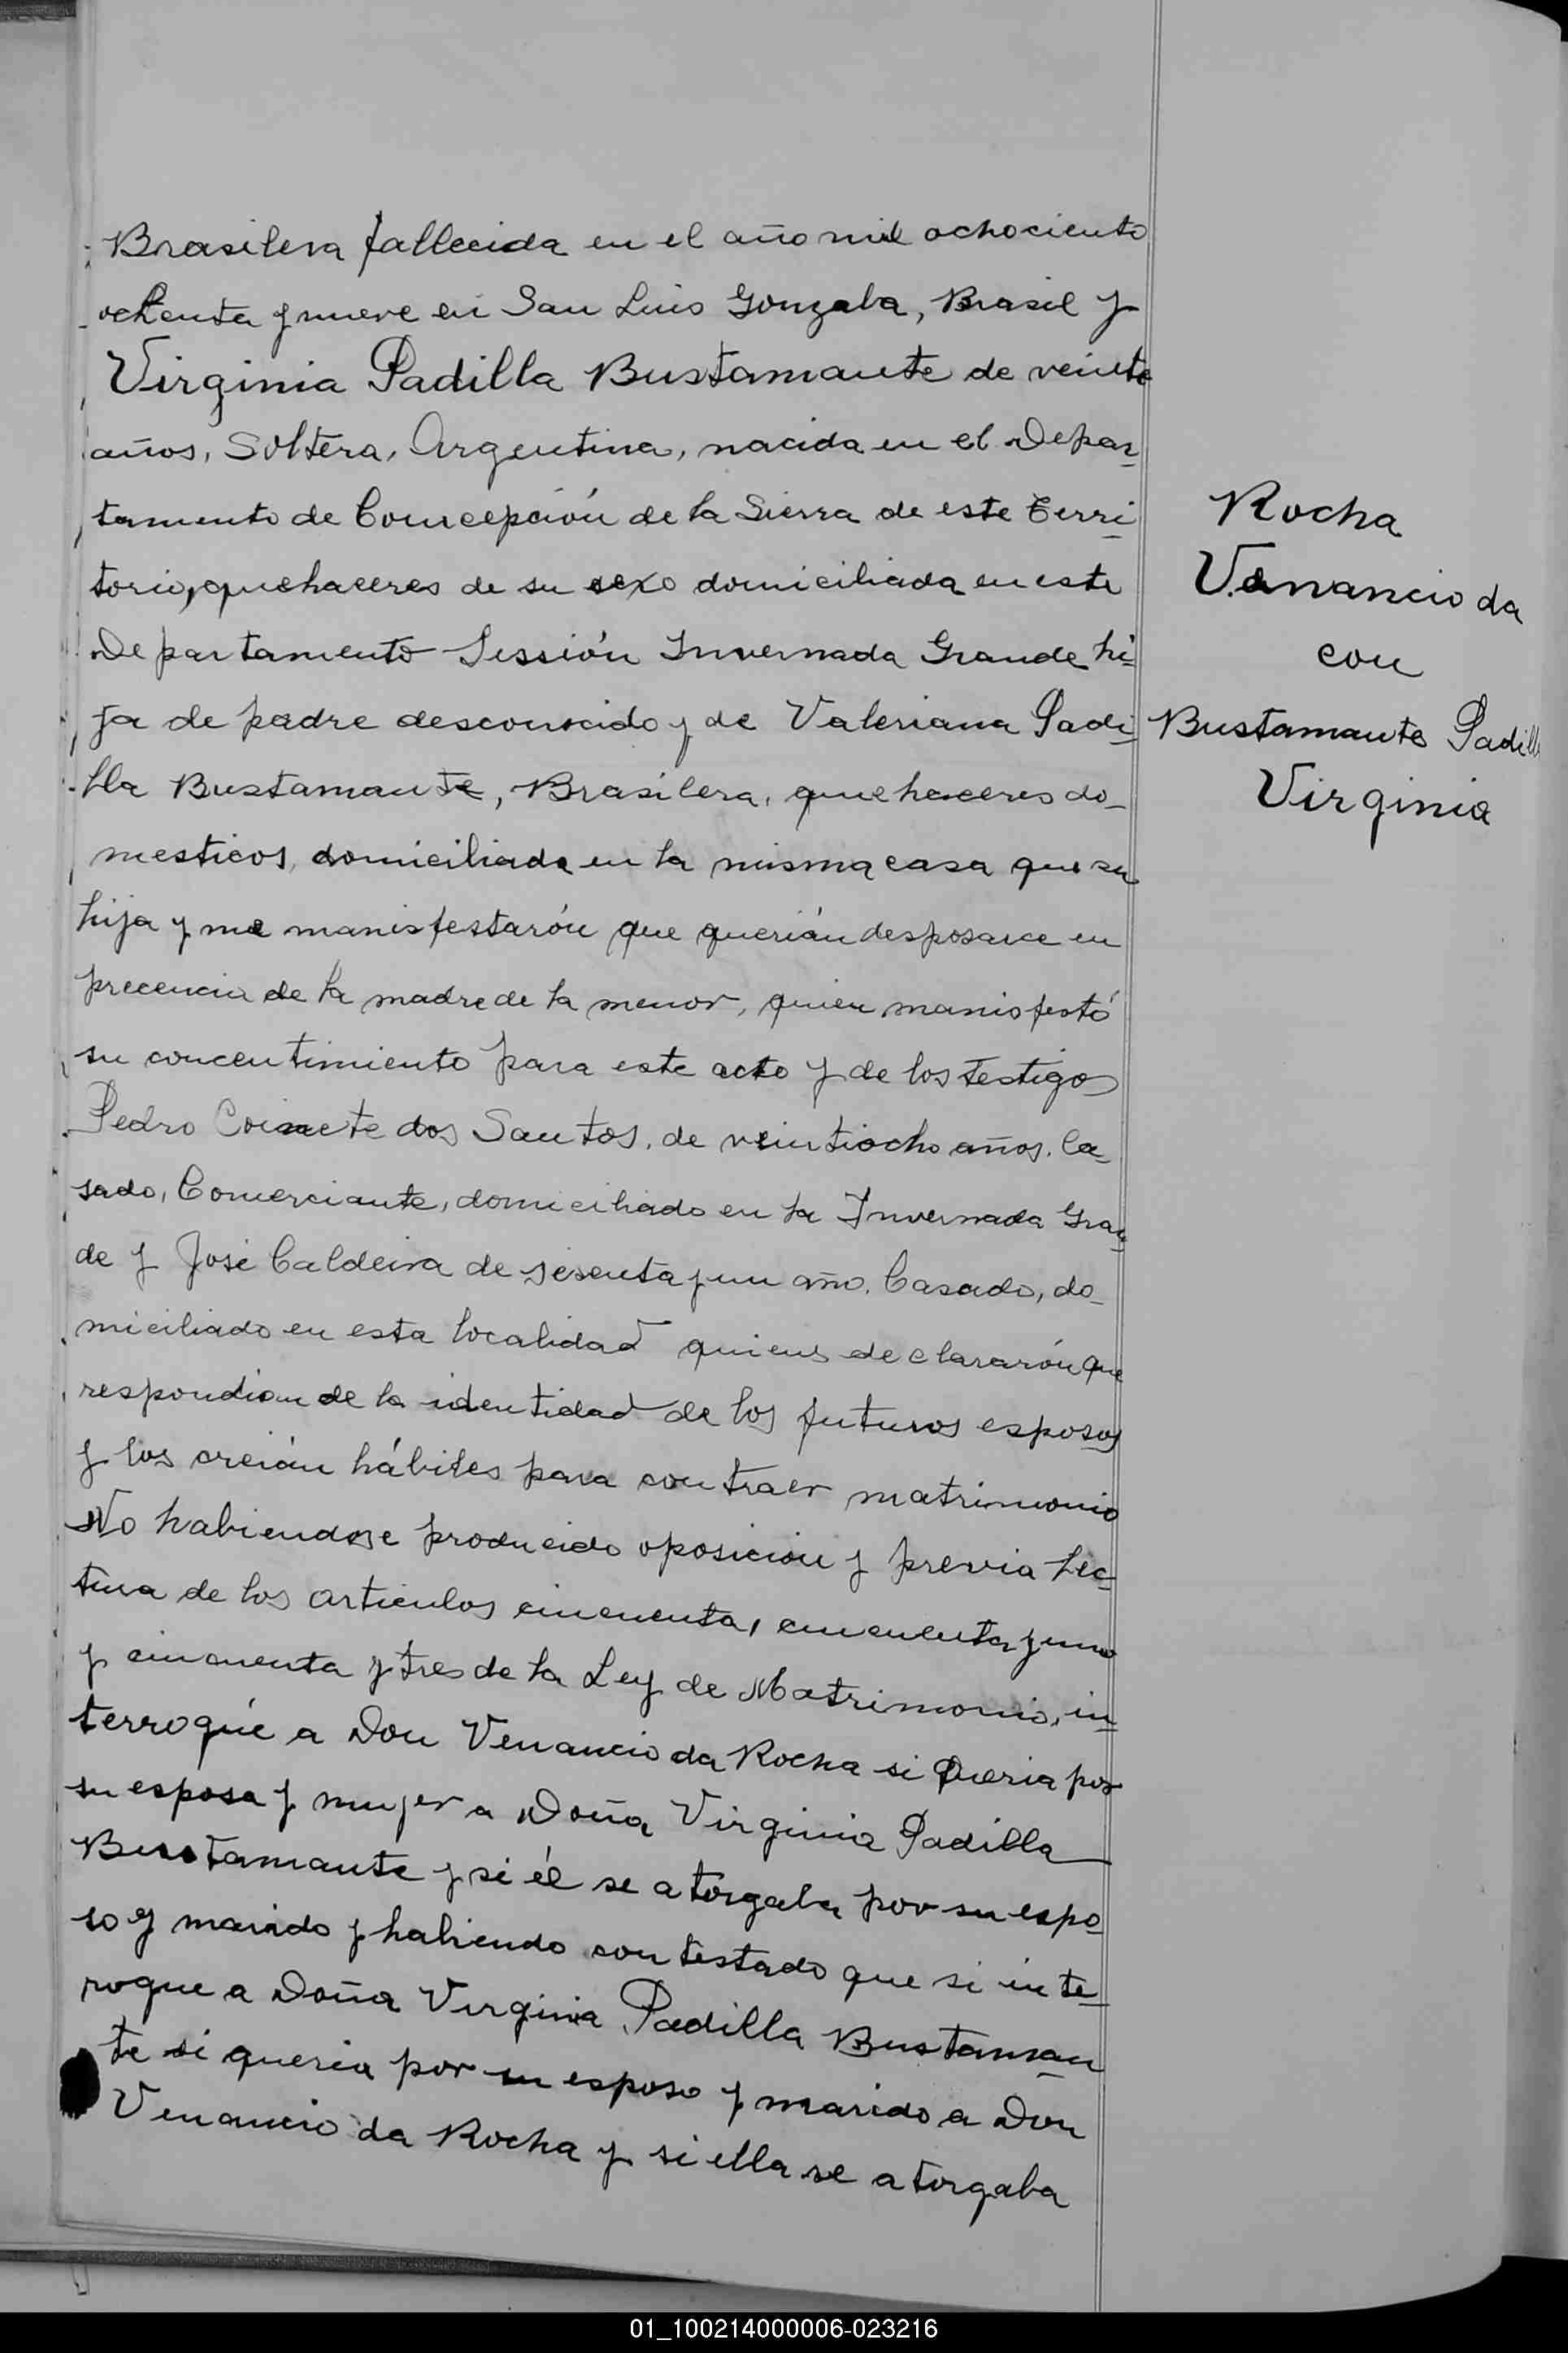 Brasilera fallecida en el año mil ochociento
ochenta y nueve en San Luis Gonzaba, Brasil y
Virginia Padilla Bustamante de veinte
años, Soltera, Argentina, nacida en el Depar-
tamento de Concepción de la Sierra de este Terri-
torio, quehaceres de su sexo domiciliada en este
Departamento Sessión Invernada Grande hi-
ja de padre desconocido y de Valeriana Padi-
lla Bustamante, Brasilera, quehaceres do-
mesticos, domiciliada en la misma casa que su
hija y me manisfestarón que querián desposarce en
precencia de la madre de la menor, quien manisfestó
su concentimiento para este acto y de los testigos
Pedro dos Santos, de veintiocho años, Ca-
sado, Comerciante, domiciliado en la Invernada Gran-
de y José Caldeira de sesenta y un año, Casado, do-
miciliado en esta localidad quienes declararón que
respondian de la identidad de los futuros esposos
y los creián hábiles para contraer matrimonio
No habiendose producido oposición y previa lec-
tura de los articulos cincuenta, cincuenta y uno
y cincuenta y tres de la Ley de Matrimonio, in-
terrogué a Don Venancio da Rocha si Queria por
su esposa y mujer a Doña Virginia Padilla
Bustamante y si él se atorgaba por su espo-
so y marido y habiendo contestado que si inte-
rogue a Doña Virginia Padilla Bustaman-
te si queria por su esposo y marido a Don
Venancio da Rocha y si ella se atorgaba
Rocha
Venancio da
con
Bustamante Padilla
Virginia
01_100214000006-023216